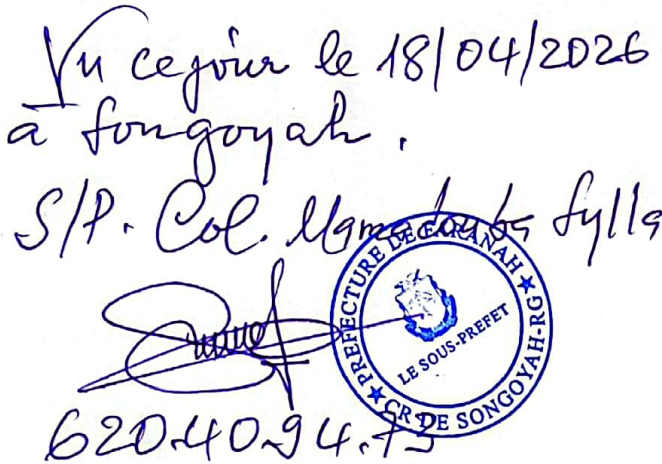 Vu ce jour le 18/04/2026
à Songoyah.
S/P. Col. Mamadouba Sylla
PREFECTURE DE FARANAH
LE SOUS-PREFET
CR DE SONGOYAH-RG
620.40.94.73